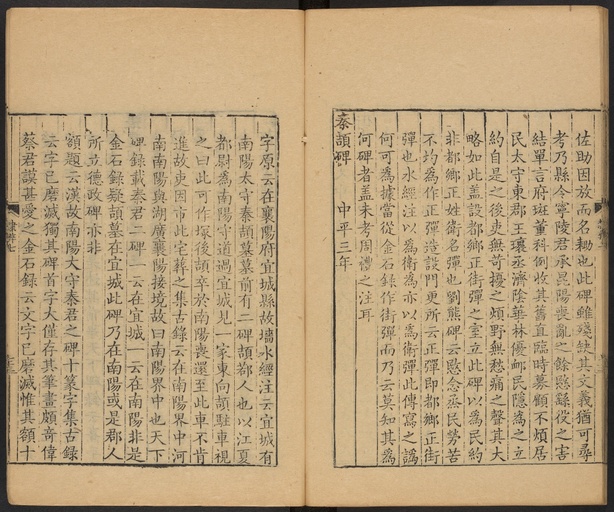 佐助因放而名耡也此碑雖殘缺其文義猶可尋
考乃縣令寧陵君承昆陽喪亂之餘愍繇役之害
結單言府斑董科例收其舊直臨時募顧不煩居
民太守東郡王瓌丞濟陰華林優卹民隱為之立
約自是之後吏無苛擾之煩野無愁痛之聲其大
略如此蓋設都鄉正街彈之室立此碑以為民約
非都鄉正姓衛名彈也劉熊碑云愍念烝民勞苦
不均為作正彈造設門更所云正彈即都鄉正街
彈也水經注以為衛為亦以為衛彈此傳寫之譌
何可為據當從金石錄作街彈而乃云莫知其為
何碑者蓋未考周禮之注耳
秦頡碑 中平三年
字原云在襄陽府宜城縣故墻水經注云宜城有
南陽太守秦頡墓墓前有二碑頡鄀人也以江夏
都尉為南陽守道過宜城見一家東向頡駐車視
之曰此可作塚後頡卒於南陽喪還至此車不肯
進故吏因市此宅葬之集古錄云在南陽界中河
南南陽與湖廣襄陽接境故曰南陽界中也天下
碑錄載秦君二碑一云在宜城一云在南陽非是
金石錄疑頡墓在宜城此碑乃在南陽或是郡人
所立德政碑亦非
額題云漢故南陽大守秦君之碑十篆字集古錄
云字已磨滅獨其碑首字大僅存其筆畫頗奇偉
蔡君謨甚愛之金石錄云文字已磨滅惟其額十